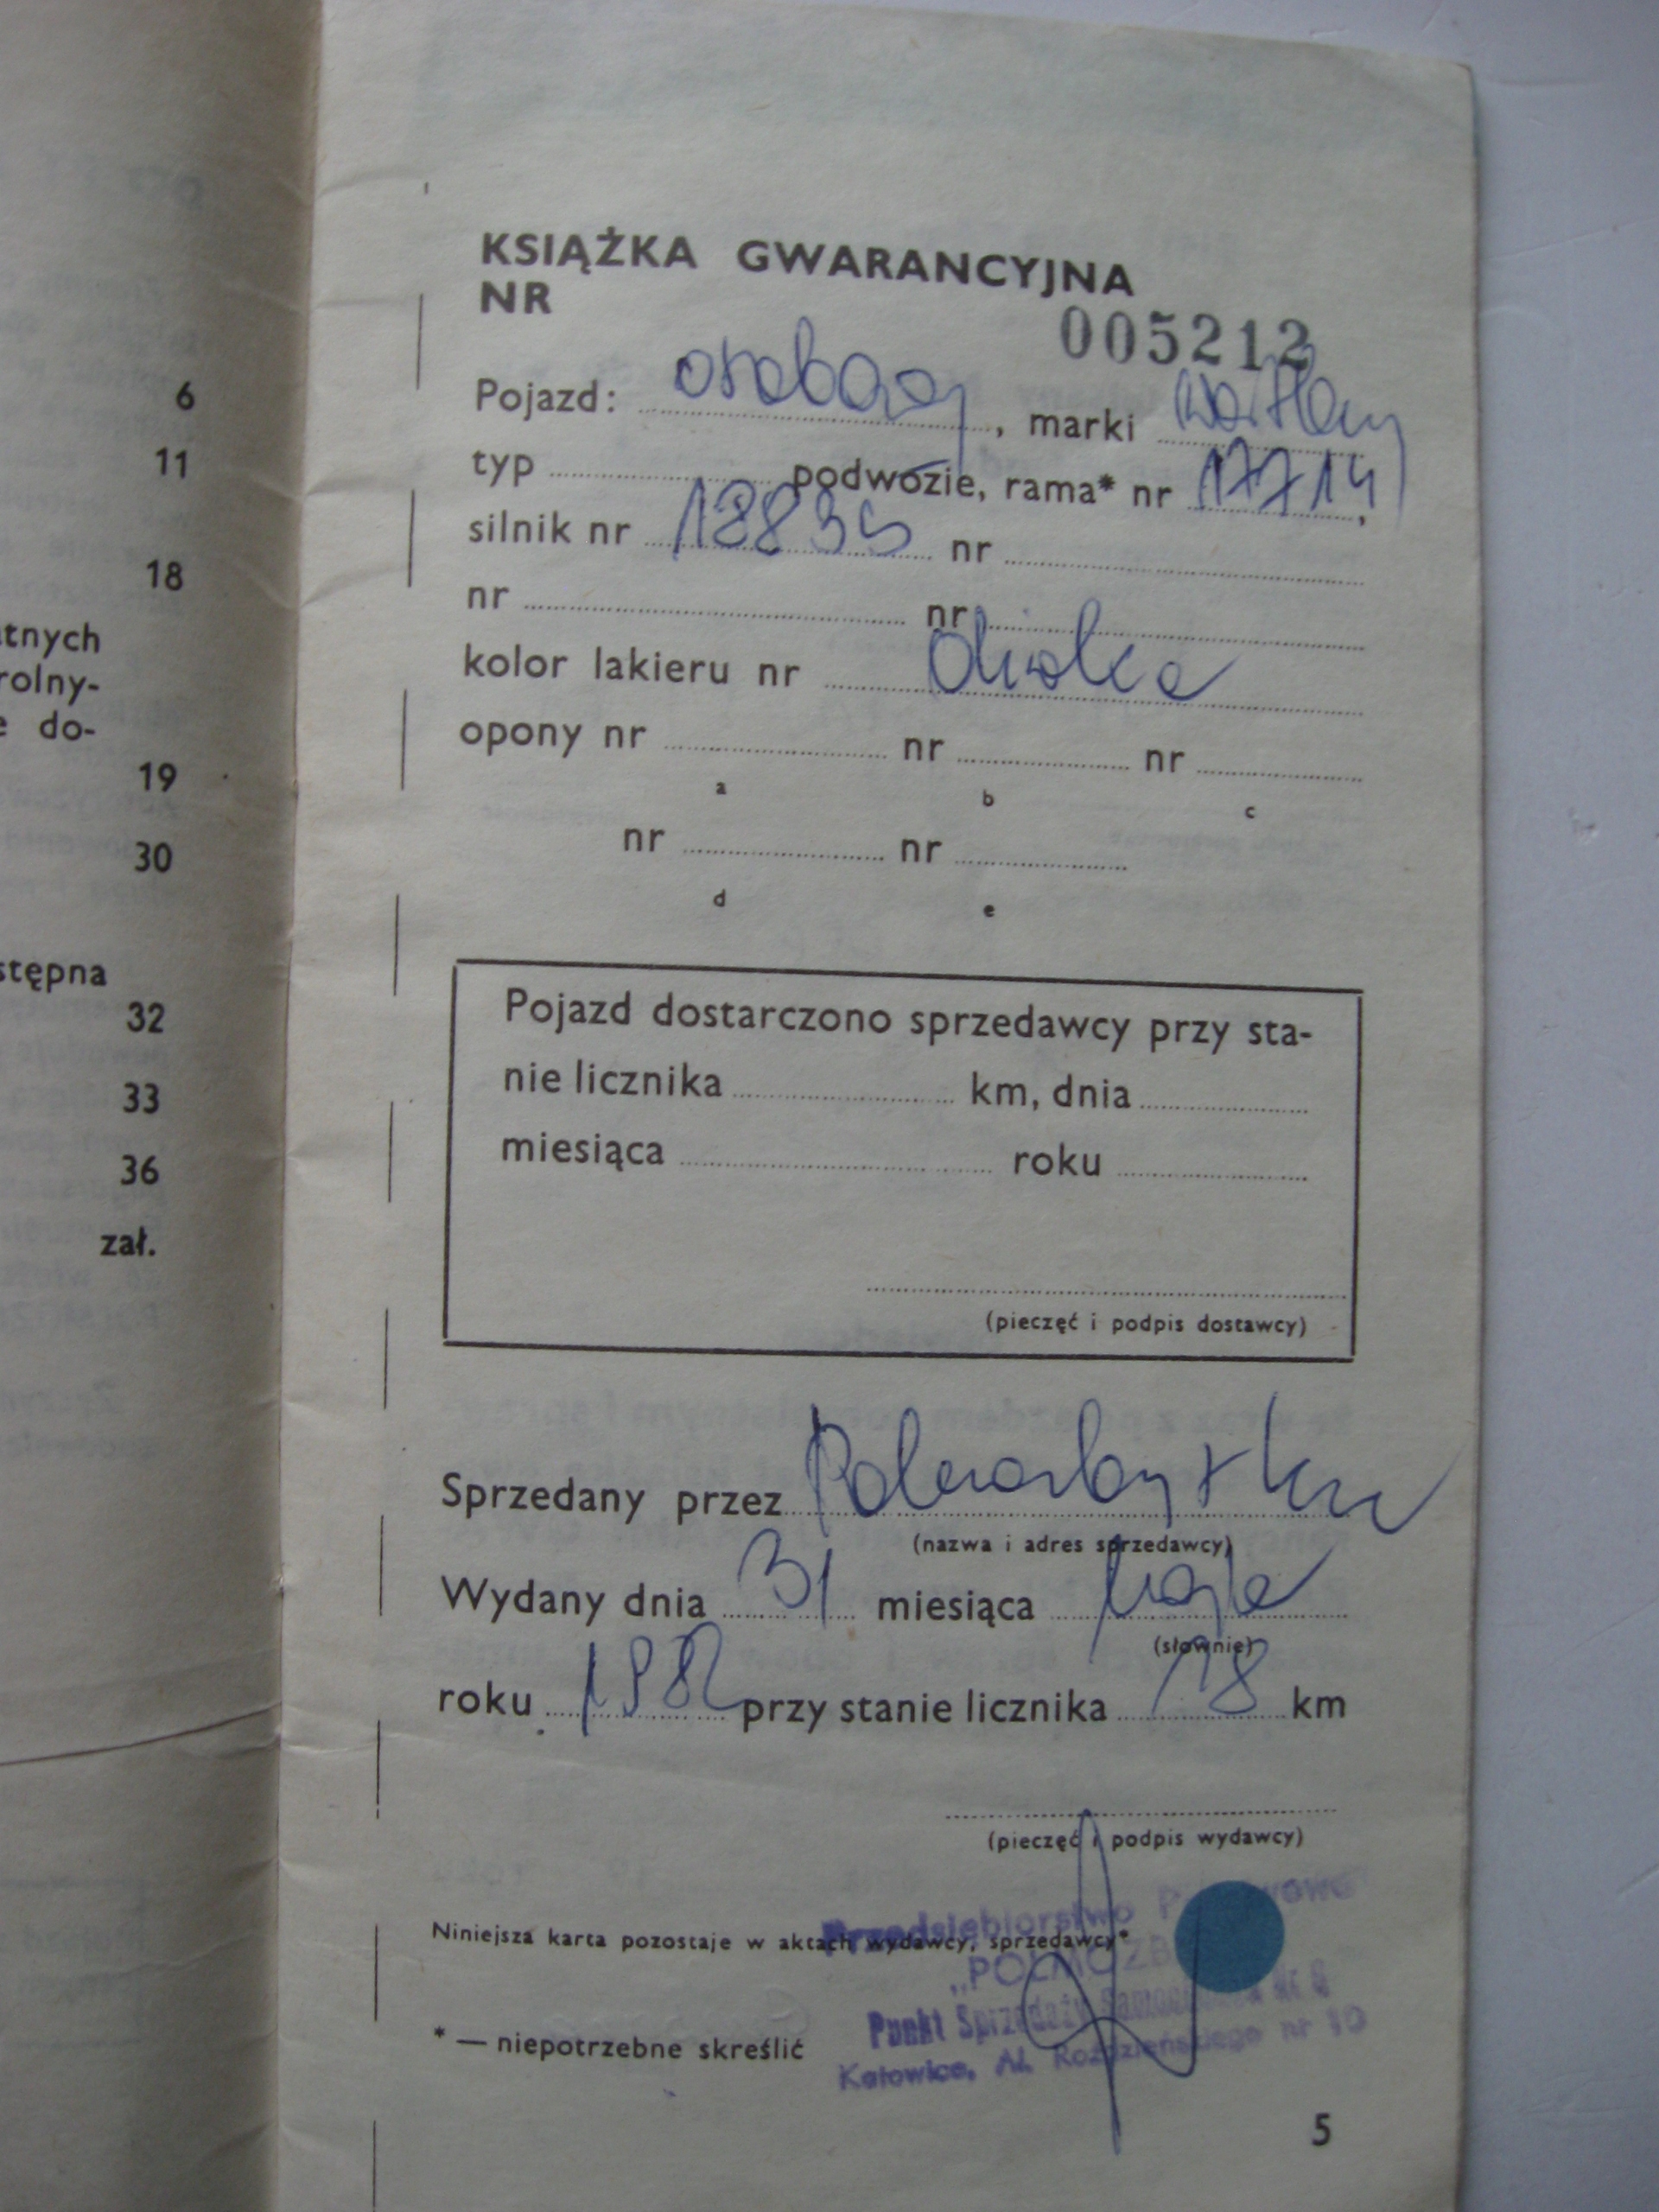 6
11
18
atnych
rolny-
e do-
19
30
stępna
32
33
36
zał.
KSIĄŻKA GWARANCYJNA
NR
005212
Pojazd: osobowy, marki
typ podwozie, rama* nr 17714,
silnik nr nr
nr nr
kolor lakieru nr
opony nr nr nr
a b c
nr nr
d e
Pojazd dostarczono sprzedawcy przy sta-
nie licznika km, dnia
miesiąca roku
(pieczęć i podpis dostawcy)
Sprzedany przez
(nazwa i adres sprzedawcy)
Wydany dnia 31 miesiąca maja
(słownie)
roku 1982 przy stanie licznika 18 km
(pieczęć i podpis wydawcy)
Niniejsza karta pozostaje w aktach wydawcy, sprzedawcy*
Przedsiębiorstwo
Punkt Sprzedaży
* — niepotrzebne skreślić
Katowice, Al. Roździeńskiego nr 10
5